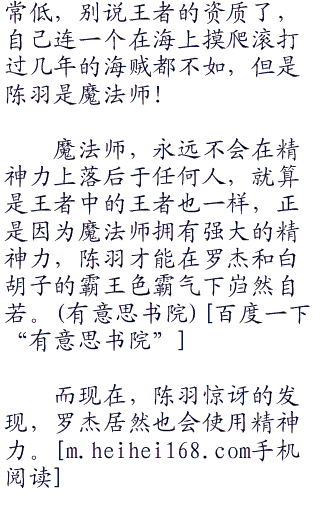 常低，别说王者的资质了，
自己连一个在海上摸爬滚打
过几年的海贼都不如，但是
陈羽是魔法师！
魔法师，永远不会在精
神力上落后于任何人，就算
是王者中的王者也一样，正
是因为魔法师拥有强大的精
神力，陈羽才能在罗杰和白
胡子的霸王色霸气下岿然自
若。(有意思书院)[百度一下
“有意思书院”]
而现在，陈羽惊讶的发
现，罗杰居然也会使用精神
力。[m.heihei168.com手机
阅读]